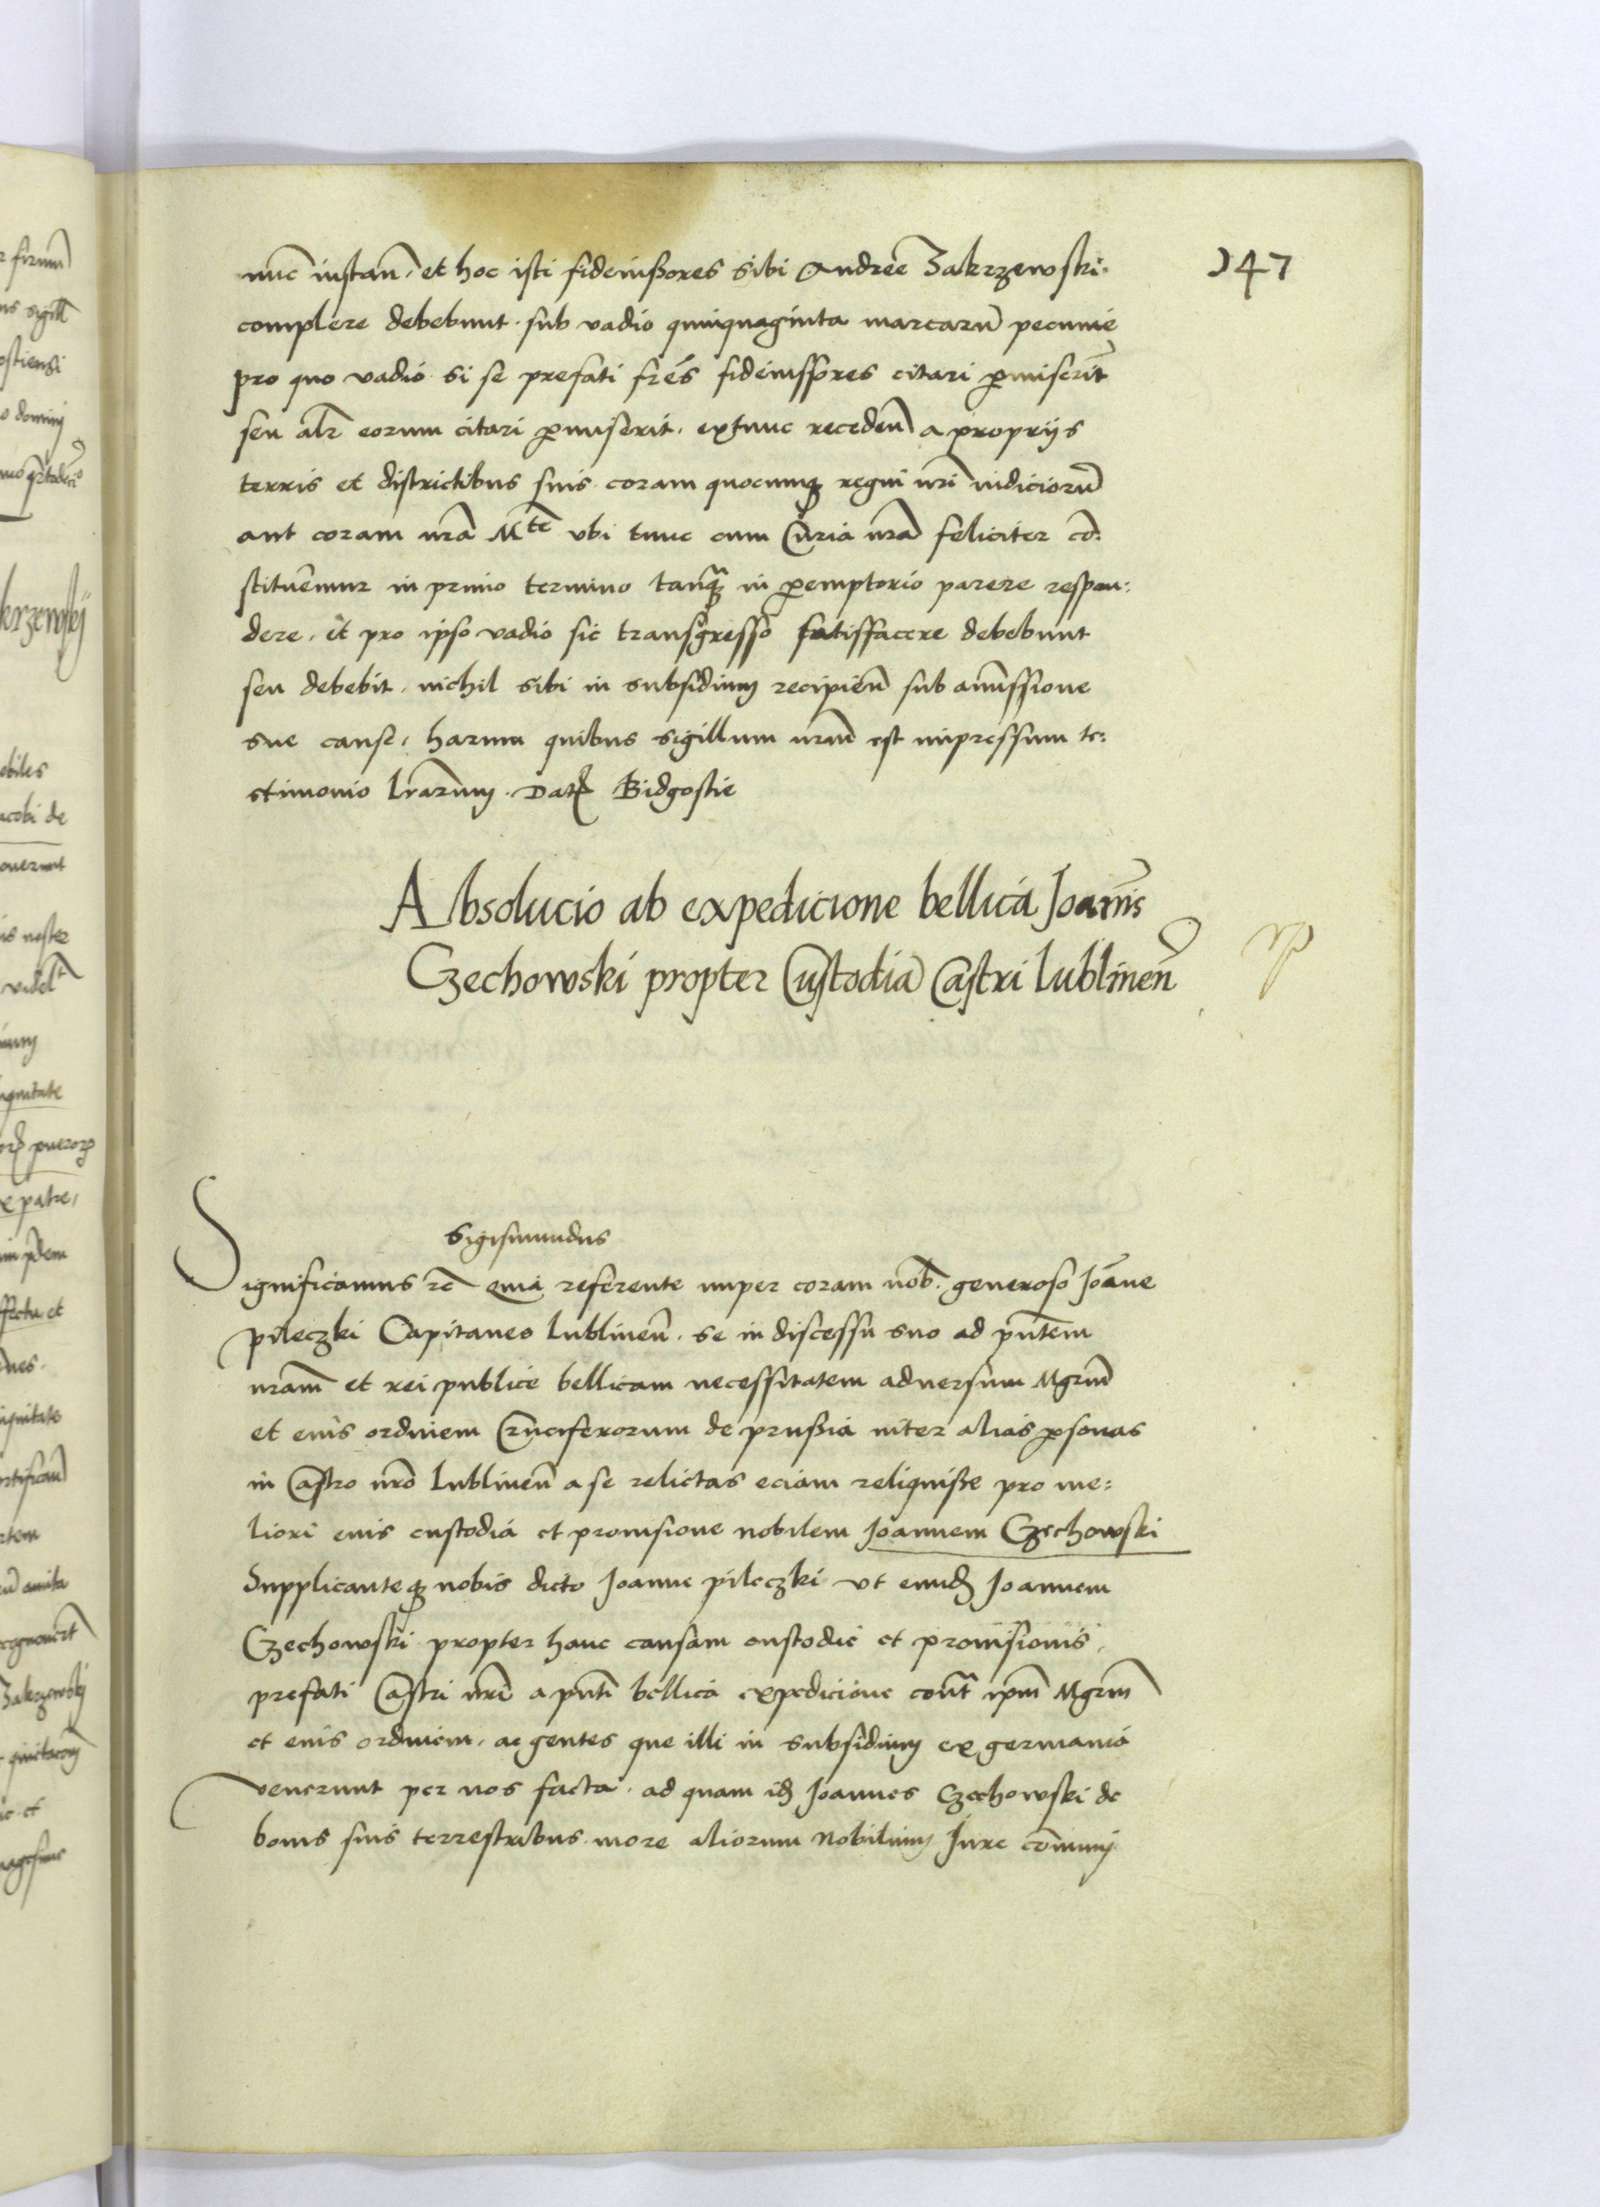 147
nuc instan, et hoc isti fideiussores sibi Andree Zakrzewski
complere debebunt sub vadio quinquaginta marcarū pecunie
pro quo vadio si se prefati frēs fideiussores citari pmiserīt
seu altr eorum citari pmiserit, extunc recedeñ a proprijs
terris et districtibus suis coram quocumq regni nri iudiciorū
aut coram nrā Mte ubi tunc cum Curia nrā feliciter cō:
stituemur in primo termino tanq in peremptorio parere respon:
dere, et pro ipso vadio sic transgresso satisfacere debebunt
seu debebit, nichil sibi in subsidium recipieñ sub amissione
sue cause, harum quibus sigillum nrm est impressum te:
stimonio lrarum. Dat Bidgostie
Absolucio ab expedicione bellica Joānis
Czechowski propter Custodiā Castri Lublineñ
Sigismundus
Significamus rc Quia referente nuper coram nob generoso Joāne
pileczki Capitaneo Lublineñ. se in discessu suo ad pntem
nram et rei publice bellicam necessitatem adversum Mgrm
et eius ordinem Cruciferorum de prussia inter alias psonas
in Castro nro Lublineñ a se relictas eciam reliquisse pro me:
liori eius custodia et provisione nobilem Joannem Czechowski
Supplicanteq nobis dicto Joanne pileczki ut eund Joannem
Czechowski propter hanc causam custodie et provisionis
prefati Castri nri a pnti bellica expedicione cont ipm Mgrm
et eius ordinem, ac gentes que illi in subsidium ex germania
venerunt per nos facta, ad quam id Joannes Czechowski de
bonis suis terrestribus more aliorum Nobilium Jure cōmuni